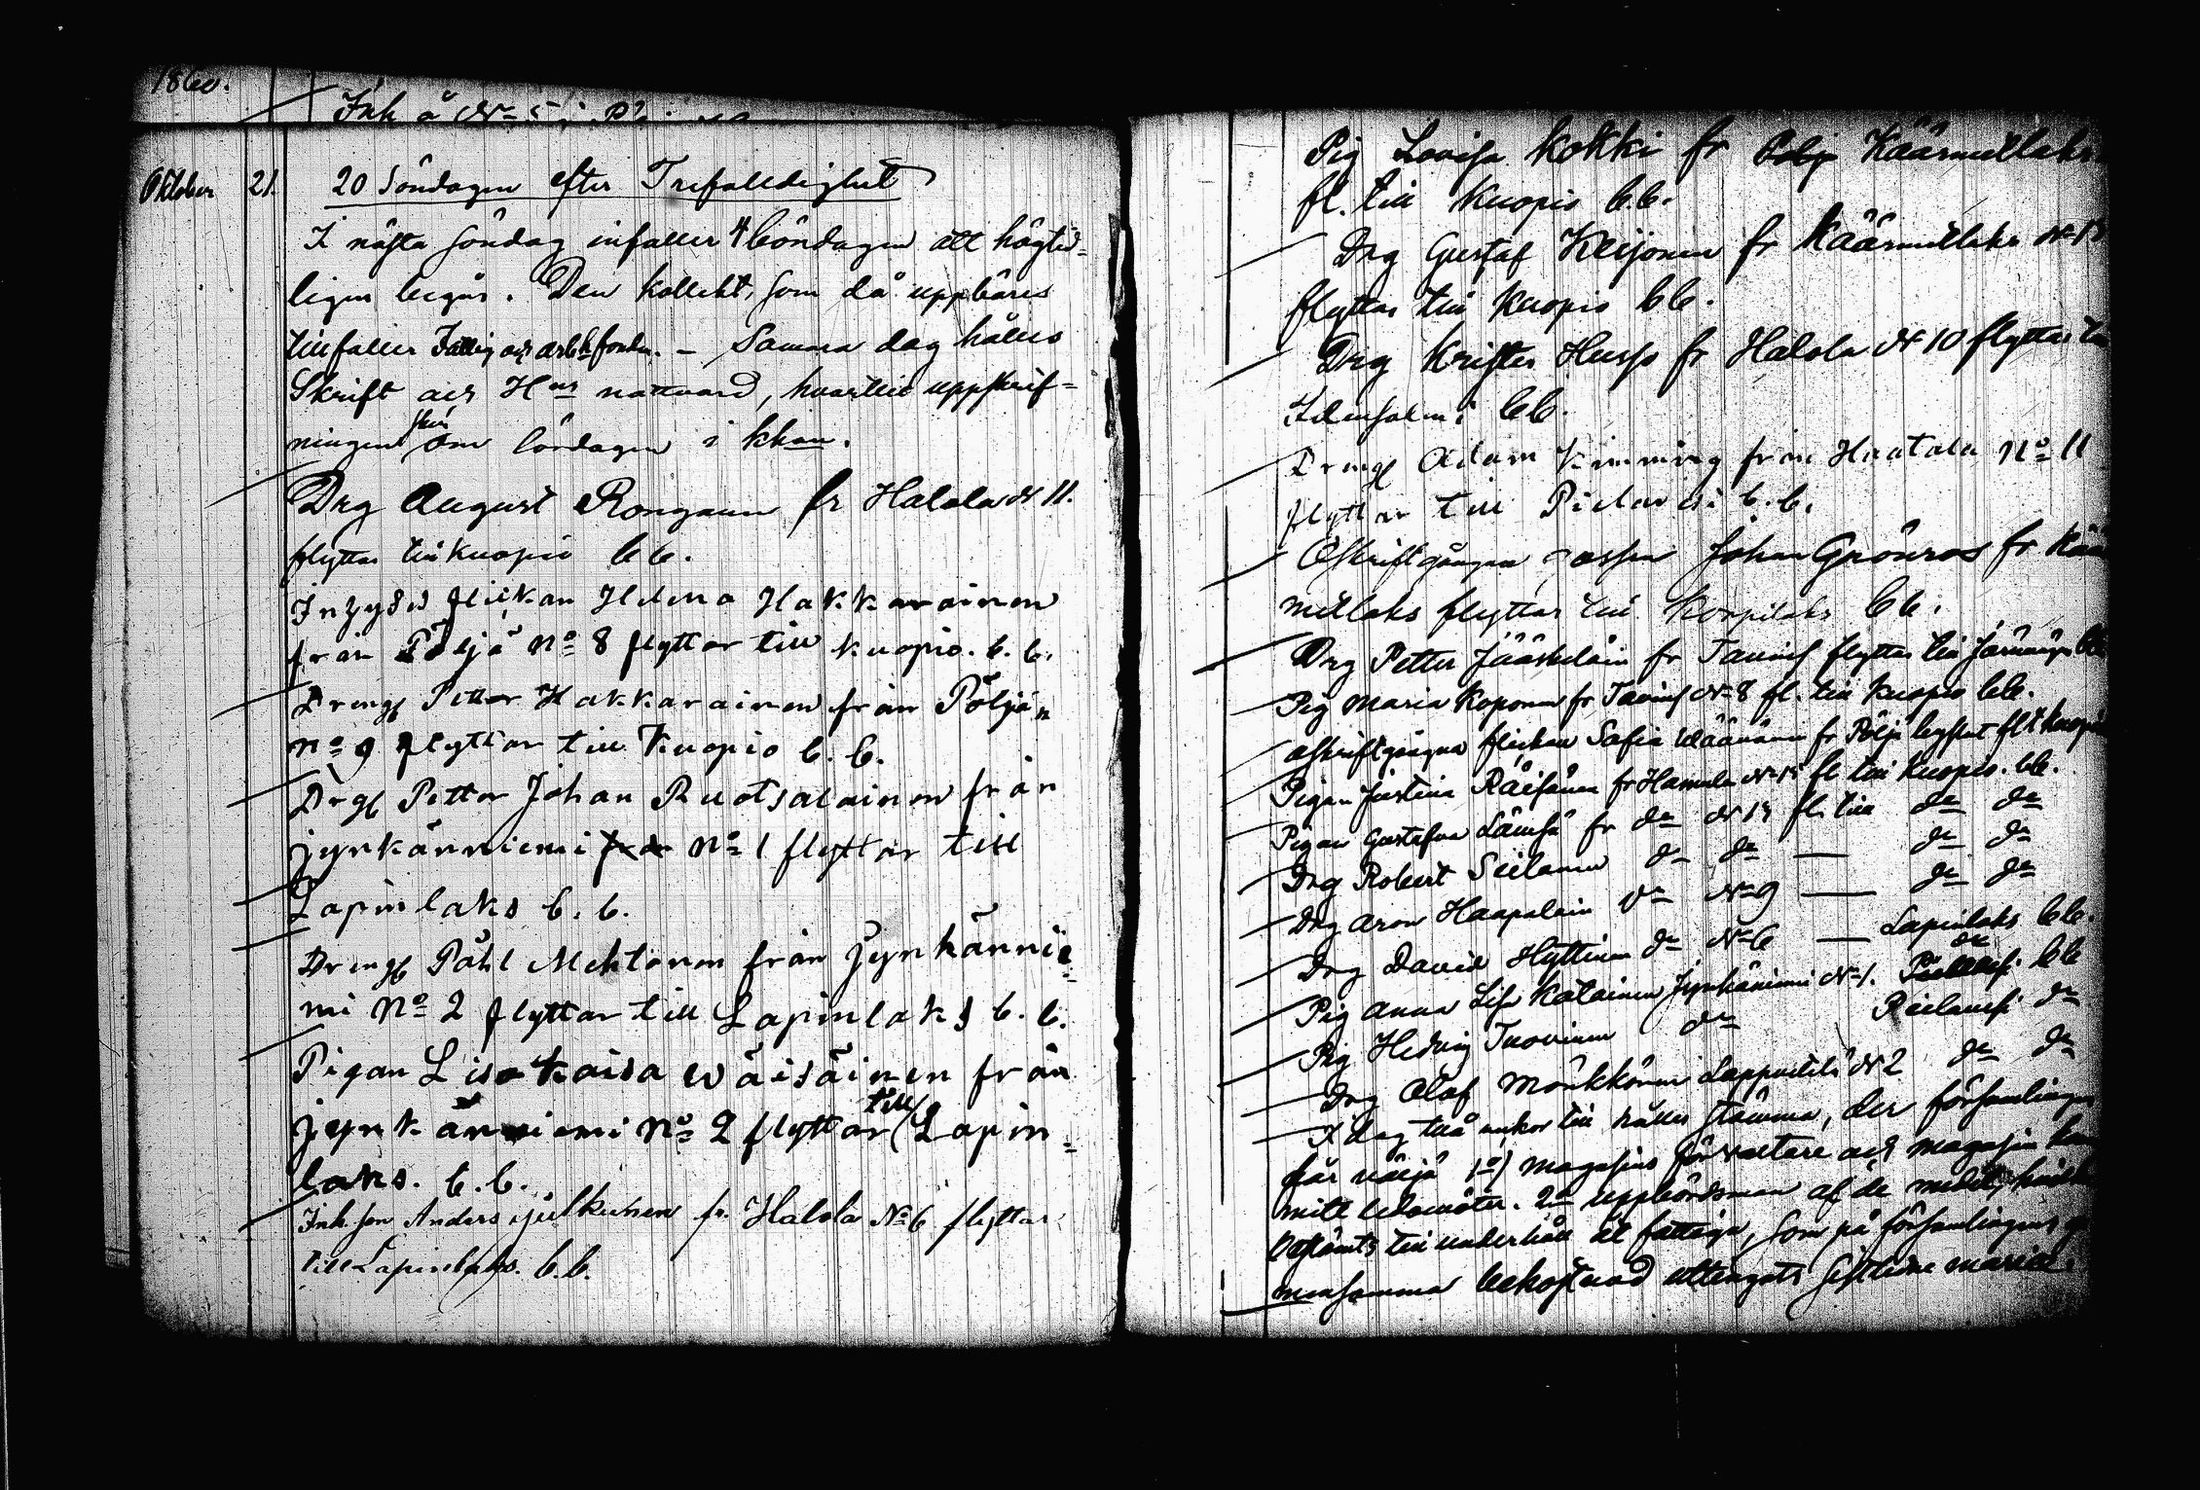 1860.
Oktober 21. 20 Söndagen efter Trefalldighet
I nästa söndag infaller 4 Böndagen att högtid-
ligen begås. Den kollekt, som då uppbäres
tillfaller Fattig och arbh fonden. – Samma dag hålles
Skrift och Hns nattvard, hvartill uppskrif-
ningen sker om lördagen i kkan.
Drg August Rongain fr Halola N 11.
flyttar till Kuopio b b.
Inhyses flickan Helena Hakkarainen
från Pöljä No 8 flyttar till Kuopio. b. b.
Dreng Petter Hakkarainen från Pöljän
No 9 flyttar till Kuopio b. b.
Drg Petter Johan Ruotsalainen från
Jynkänniemi No 1 flyttar till
Lapinlaks b. b.
Dreng Påhl Mehtonen från Jynkännie-
mi No 2 flyttar till Lapinlaks b. b.
Pigan Lisa Kaisa Wäisäinen från
Jynkänniemi No 2 flyttar till Lapin-
laks. b. b.
Inh. son Anders Julkunen fr. Halola No 6 flyttar
till Lapinlaks. b. b.
Pig Lovisa Kokki fr Käärmetlaks
fl. till Kuopio b. b.
Drg Gustaf Keijonen fr Käärmetlaks N 13
flyttar till Kuopio b b.
Drg Krister Husso fr Halola N 10 flyttar
Idensalmi b b.
Dreng Adam Kimming från Haatala No 11
flyttar till Pielavesi b. b.
Johan Grönroos fr Kää
metlaks flyttar till Korpilaks b b.
Drg Petter Jääskeläin fr flyttar till
Pig Maria Koponen fr N 8 fl. till Kuopio b b.
flickan Sofia Väänänen fr Pölje fl t Kuopio
Pigan Justina Räisänen fr Hamula N 15 fl till Kuopio. b b.
Pigan Gustafva Lämsä fr do N 13 fl. till do do
Drg Robert Seilanen do do — do do
Drg Aron Haapalain do No 9 — do do
Drg David Hyttinen do No 6 — Lapinlaks b b.
Pig Anna Lisa Katainen Jynkäniemi N 1. do b b
Pig Hedvig Tuovinen do Pielavesi do
Drg Olof Mönkkönen Lappetelä N 2 do do
I dag två veckor till hålles stämma, der församlingen
får välja 1o) Magasins förvaltare och magasin
mitt ledamöter. 2o uppbördsman af de medel,
bestämts till underhåll åt fattige, som på församlingens
mensamma bekostnad